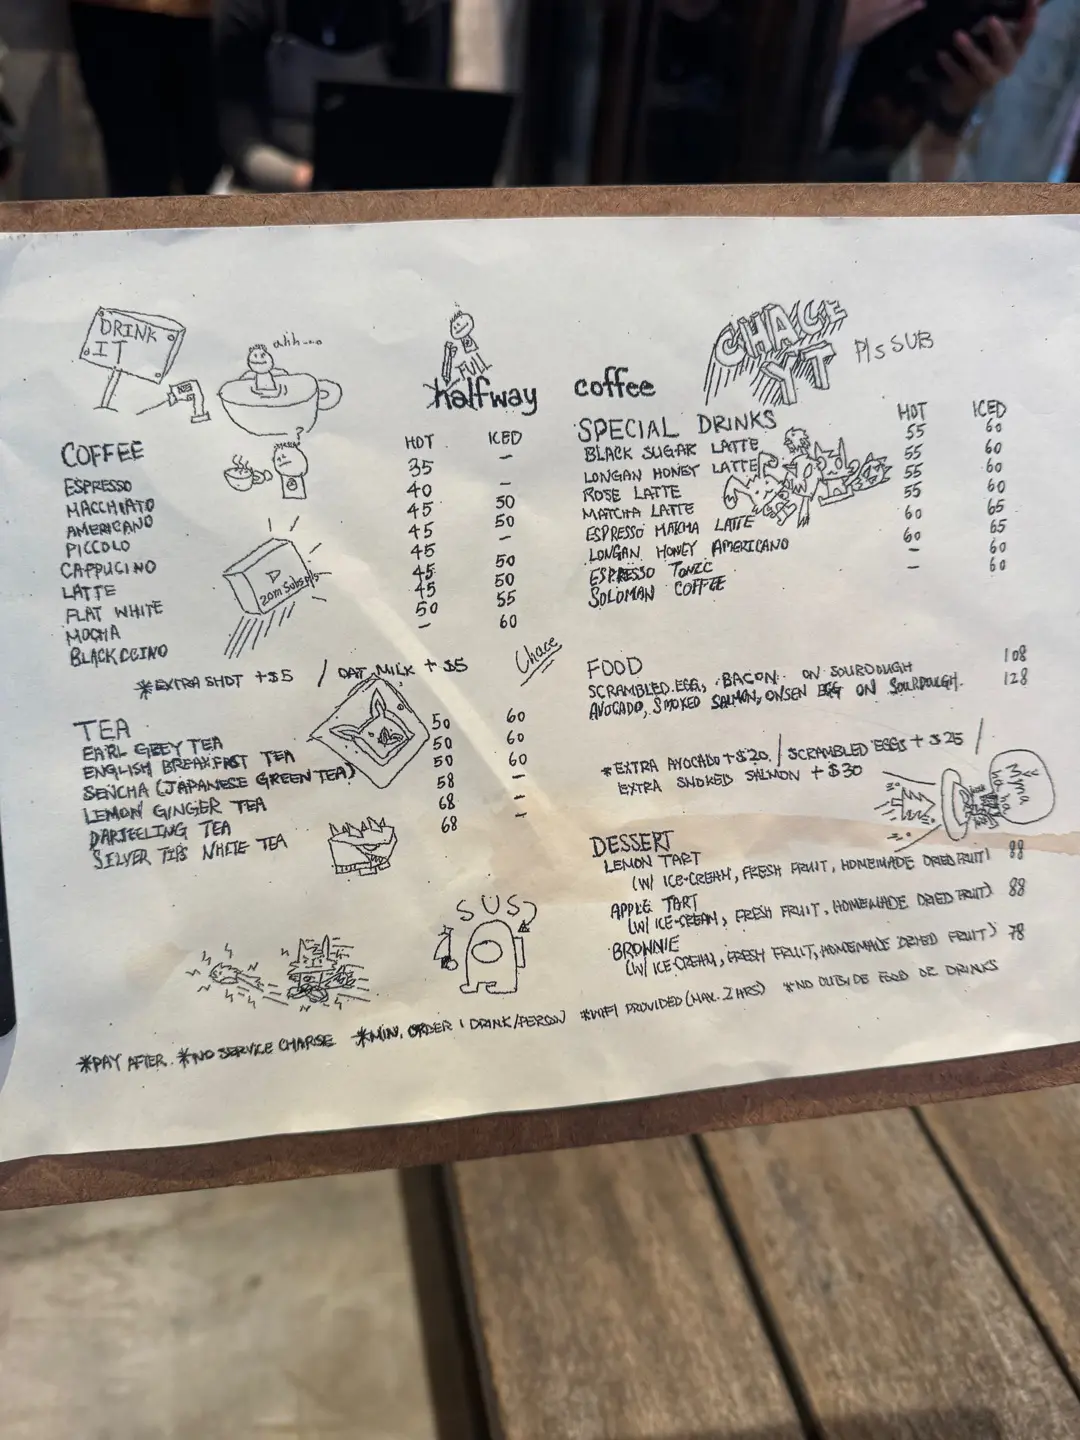 DRINK
IT
ahh....
FULL
halfway coffee
CHACE
YT
Pls SUB
COFFEE HOT ICED
ESPRESSO 35 –
MACCHIATO 40 –
AMERICANO 45 50
PICCOLO 45 50
CAPPUCINO 45 –
LATTE 45 50
FLAT WHITE 45 50
MOCHA 50 55
BLACKCCINO – 60
?
20m Subs pls
*EXTRA SHOT +$5 / OAT MILK +$5
Chace
TEA
EARL GREY TEA 50 60
ENGLISH BREAKFAST TEA 50 60
SENCHA (JAPANESE GREEN TEA) 50 60
LEMON GINGER TEA 58 –
DARJEELING TEA 68 –
SILVER TIPS WHITE TEA 68 –
SUS
SPECIAL DRINKS HOT ICED
BLACK SUGAR LATTE 55 60
LONGAN HONEY LATTE 55 60
ROSE LATTE 55 60
MATCHA LATTE 55 60
ESPRESSO MATCHA LATTE 60 65
LONGAN HONEY AMERICANO 60 65
ESPRESSO TONIC – 60
SOLOMAN COFFEE – 60
FOOD
SCRAMBLED EGG, BACON ON SOURDOUGH 108
AVOCADO, SMOKED SALMON, ONSEN EGG ON SOURDOUGH. 128
*EXTRA AVOCADO +$20 / SCRAMBLED EGGS +$25 /
EXTRA SMOKED SALMON +$30
DESSERT
LEMON TART 88
(W/ ICE-CREAM, FRESH FRUIT, HOMEMADE DRIED FRUIT)
APPLE TART 88
(W/ ICE-CREAM, FRESH FRUIT, HOMEMADE DRIED FRUIT)
BROWNIE 78
(W/ ICE-CREAM, FRESH FRUIT, HOMEMADE DRIED FRUIT)
*PAY AFTER. *NO SERVICE CHARGE *MIN. ORDER 1 DRINK/PERSON *WIFI PROVIDED (MAX. 2 HRS) *NO OUTSIDE FOOD OR DRINKS